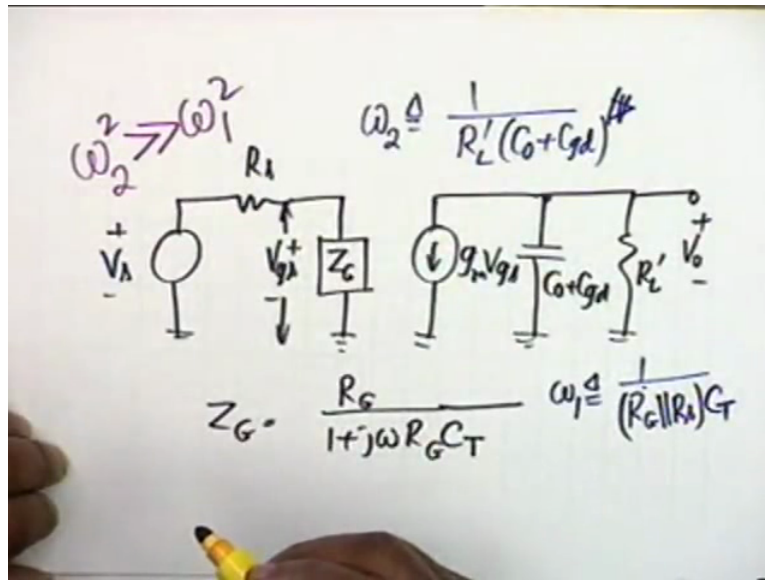 ω₂² ≫ ω₁²
ω₂ ≜ 1 / R_L'(C_0+C_gd)
R_s
+ V_s -
V_gs + -
Z_G
g_m V_gs
C_0+C_gd
R_L'
+ V_0 -
Z_G = R_G / 1+jωR_G C_T
ω₁ ≜ 1 / (R_G||R_s)C_T